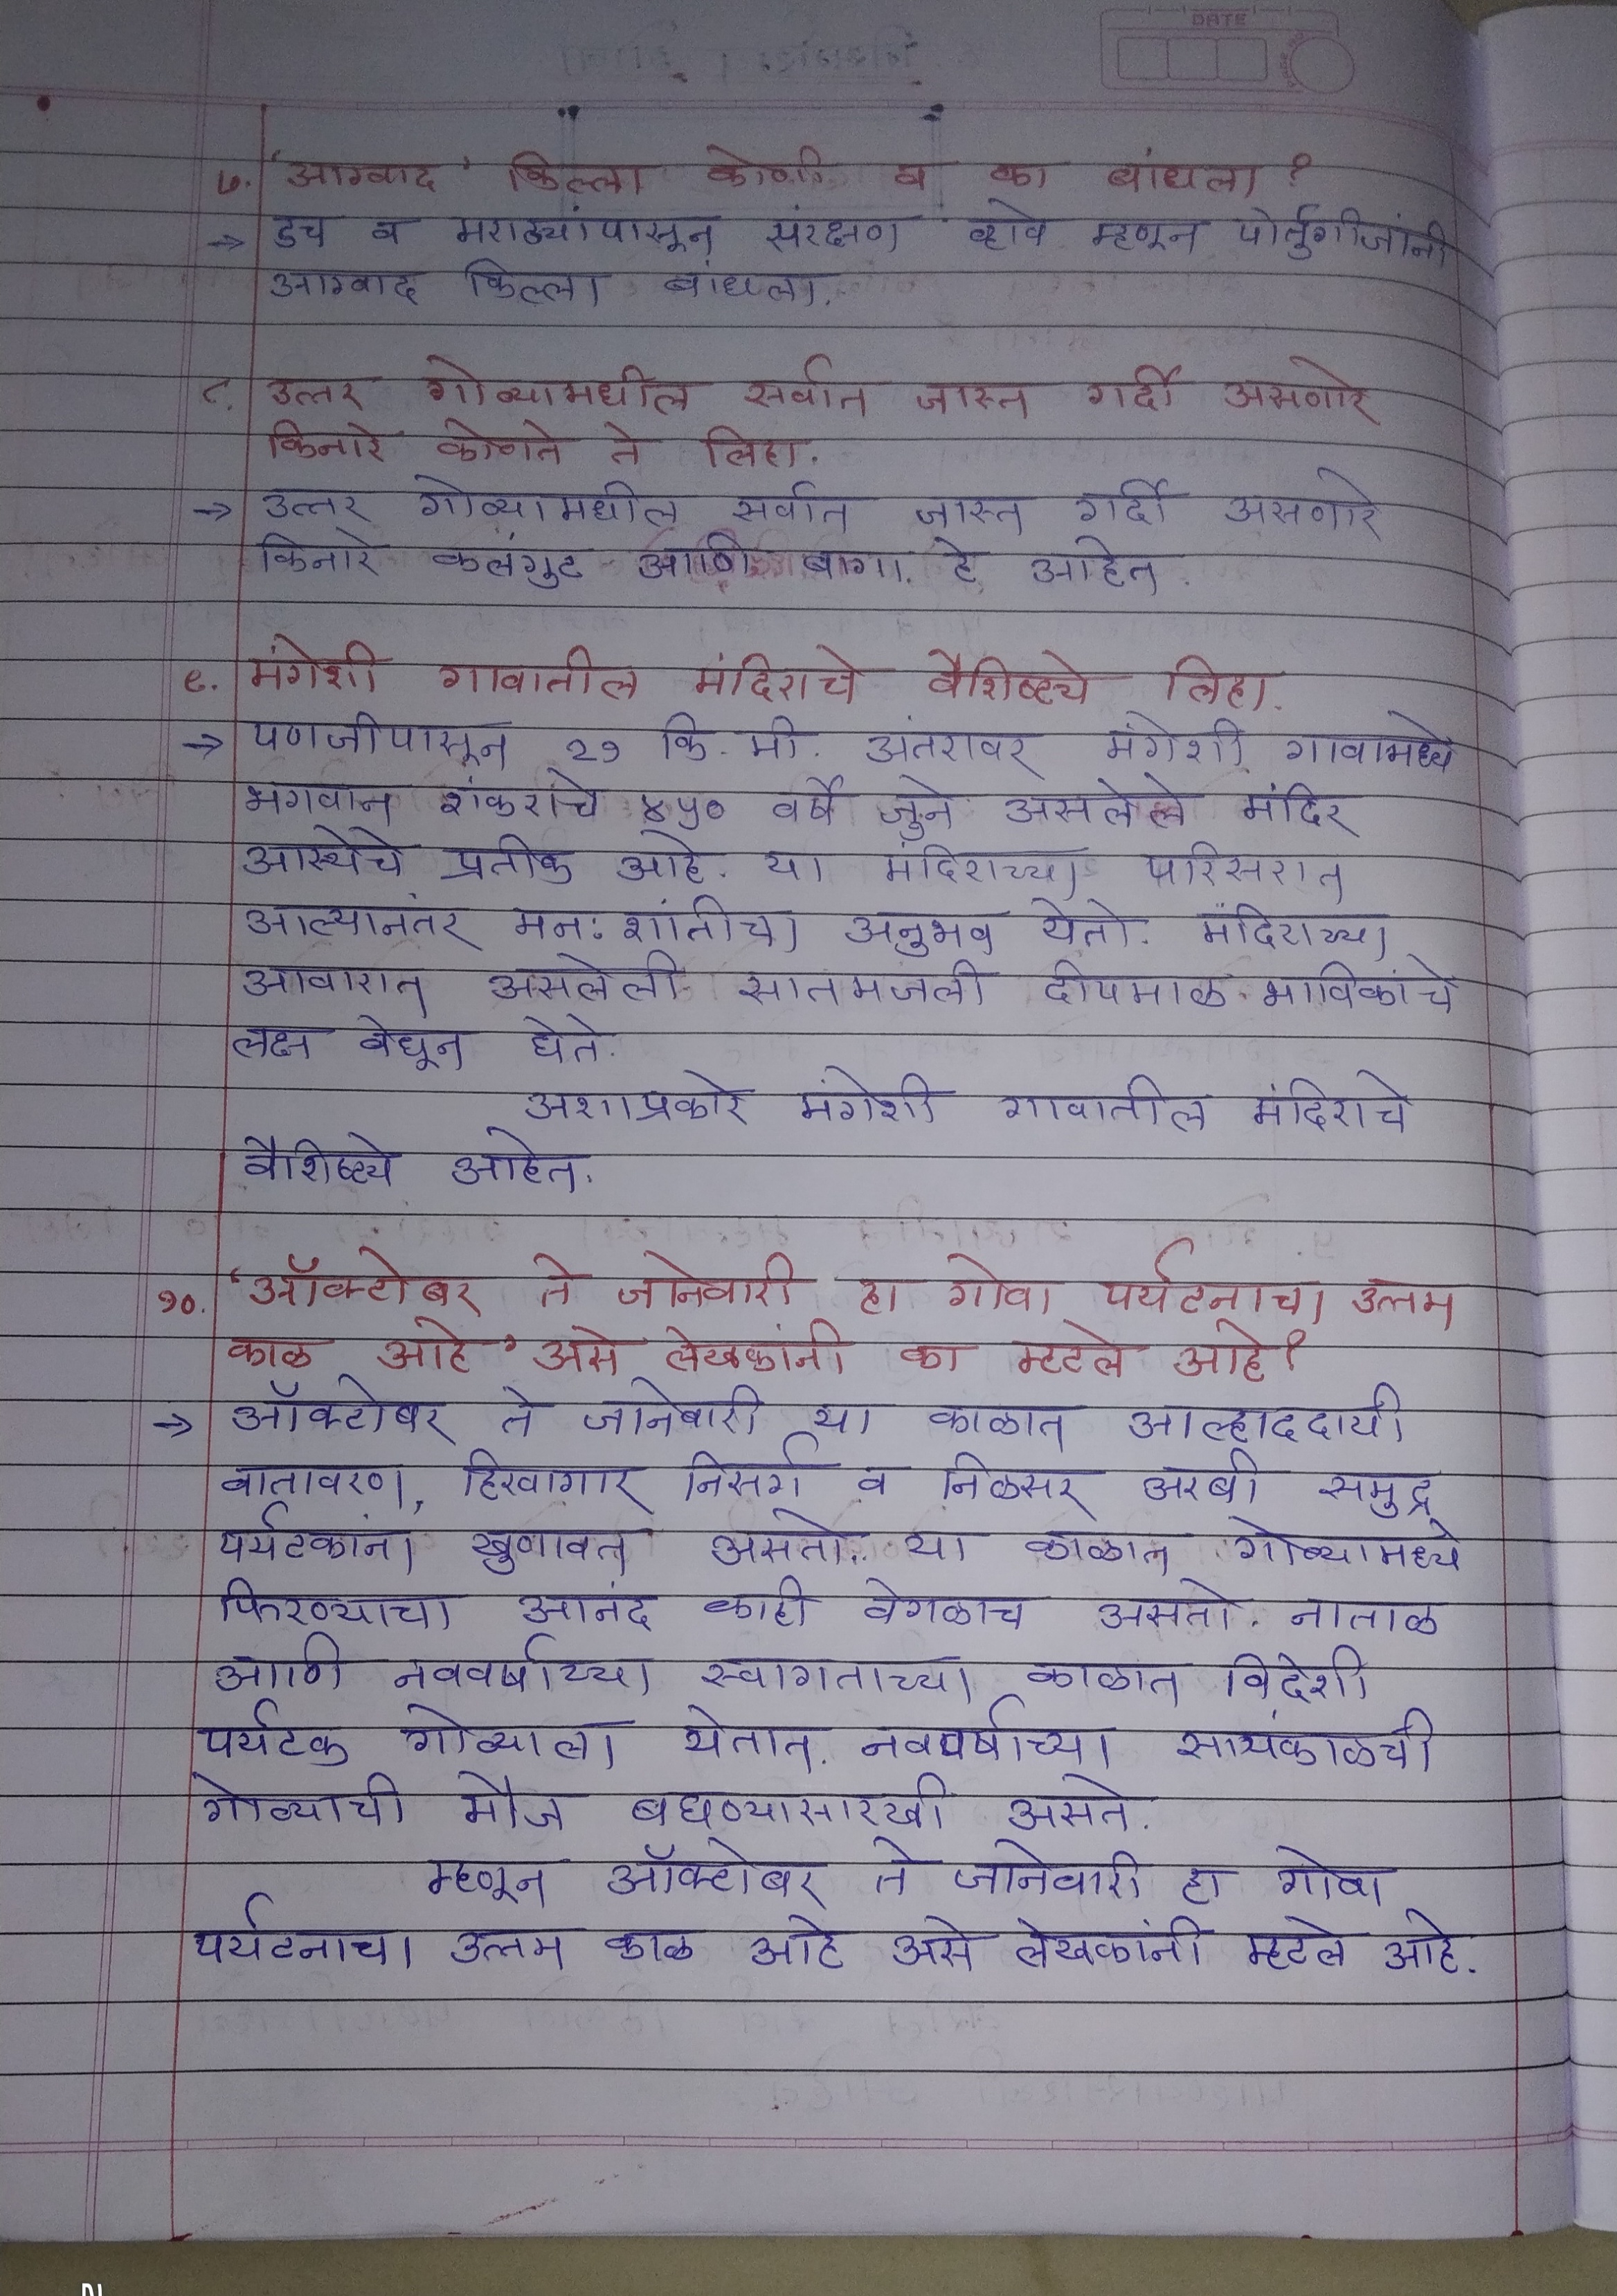 DATE
७. 'आग्वाद' किल्ला कोणी व का बांधला?
→ डच व मराठ्यांपासून संरक्षण व्हावे म्हणून पोर्तुगीजांनी
आग्वाद किल्ला बांधला.
८. उत्तर गोव्यामधील सर्वात जास्त गर्दी असणारे
किनारे कोणते ते लिहा.
→ उत्तर गोव्यामधील सर्वात जास्त गर्दी असणारे
किनारे कलंगुट आणि बागा. हे आहेत.
९. मंगेशी गावातील मंदिराचे वैशिष्ट्ये लिहा.
→ पणजीपासून २१ कि. मी. अंतरावर मंगेशी गावामध्ये
भगवान शंकराचे ४५० वर्षे जुने असलेले मंदिर
आस्थेचे प्रतीक आहे. या मंदिराच्या परिसरात
आल्यानंतर मनः शांतीचा अनुभव येतो. मंदिराच्या
आवारात असलेली सातमजली दीपमाळ भाविकांचे
लक्ष वेधून घेते.
अशाप्रकारे मंगेशी गावातील मंदिराचे
वैशिष्ट्ये आहेत.
१०. 'ऑक्टोबर ते जानेवारी हा गोवा पर्यटनाचा उत्तम
काळ आहे' असे लेखकांनी का म्हटले आहे?
→ ऑक्टोबर ते जानेवारी या काळात आल्हाददायी
वातावरण, हिरवागार निसर्ग व निळसर अरबी समुद्र
पर्यटकांना खुणावत असतो. या काळात गोव्यामध्ये
फिरण्याचा आनंद काही वेगळाच असतो. नाताळ
आणि नववर्षाच्या स्वागताच्या काळात विदेशी
पर्यटक गोव्याला येतात. नववर्षाच्या सायंकाळची
गोव्याची मौज बघण्यासारखी असते.
म्हणून ऑक्टोबर ते जानेवारी हा गोवा
पर्यटनाचा उत्तम काळ आहे असे लेखकांनी म्हटले आहे.